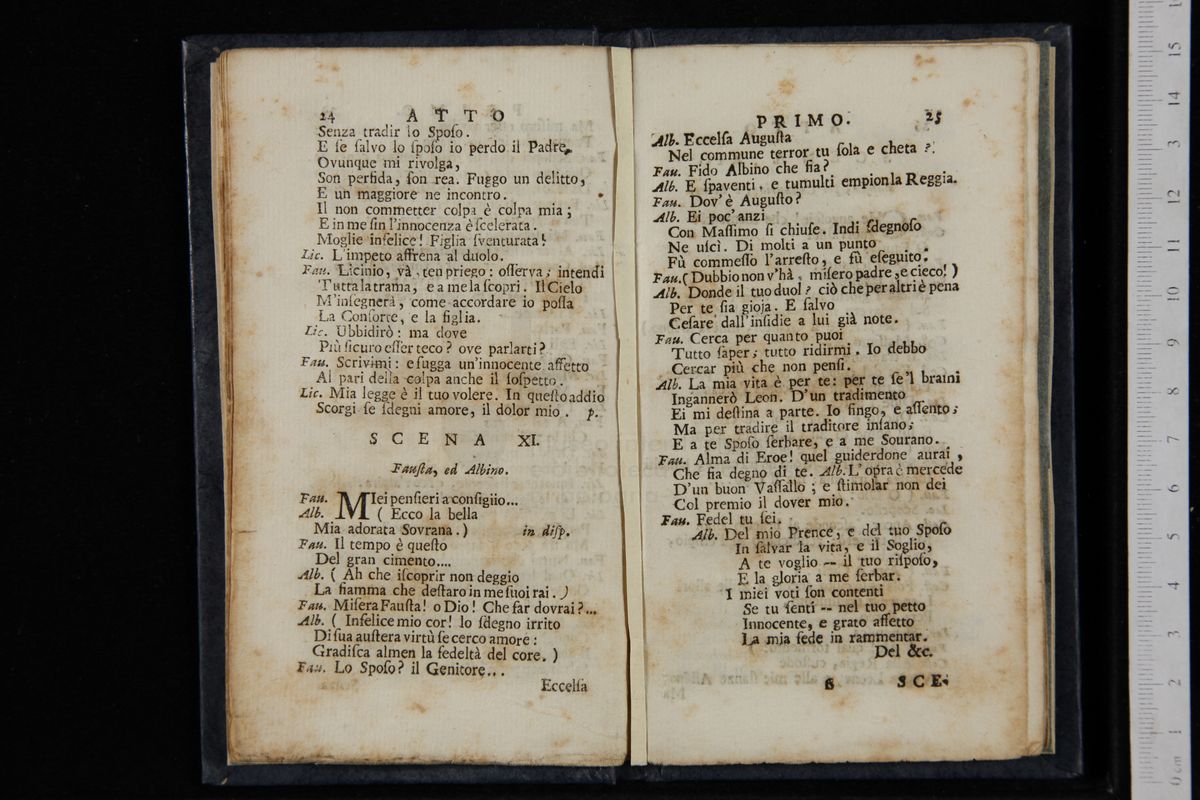 24 ATTO
Senza tradir lo Spoſo.
E ſe ſalvo lo ſpoſo io perdo il Padre,
Ovunque mi rivolga,
Son perfida, ſon rea. Fuggo un delitto,
E un maggiore ne incontro.
Il non commetter colpa è colpa mia;
E in me fin l'innocenza è ſcelerata.
Moglie infelice! Figlia ſventurata!
Lic. L'impeto affrena al duolo.
Fau. Licinio, và, ten priego: oſſerva; intendi
Tutta la trama, e a me la ſcopri. Il Cielo
M'inſegnerà, come accordare io poſſa
La Conſorte, e la figlia.
Lic. Ubbidirò: ma dove
Più ſicuro eſſer teco? ove parlarti?
Fau. Scrivimi: e fugga un'innocente affetto
Al pari della colpa anche il ſoſpetto.
Lic. Mia legge è il tuo volere. In queſto addio
Scorgi ſe ſdegni amore, il dolor mio. p.
SCENA XI.
Fauſta, ed Albino.
Fau. MIei penſieri a conſiglio...
Alb. ( Ecco la bella
Mia adorata Sovrana.) in diſp.
Fau. Il tempo è queſto
Del gran cimento....
Alb. ( Ah che iſcoprir non deggio
La fiamma che deſtaro in me ſuoi rai. )
Fau. Miſera Fauſta! o Dio! Che far dovrai?...
Alb. ( Infelice mio cor! lo ſdegno irrito
Di ſua auſtera virtù ſe cerco amore:
Gradiſca almen la fedeltà del core. )
Fau. Lo Spoſo? il Genitore...
Eccelſa
PRIMO. 25
Alb. Eccelſa Auguſta
Nel commune terror tu ſola e cheta?
Fau. Fido Albino che fia?
Alb. E ſpaventi, e tumulti empion la Reggia.
Fau. Dov'è Auguſto?
Alb. Ei poc'anzi
Con Maſſimo ſi chiuſe. Indi ſdegnoſo
Ne uſcì. Di molti a un punto
Fù commeſſo l'arreſto, e fù eſeguito.
Fau. ( Dubbio non v'hà, miſero padre, e cieco! )
Alb. Donde il tuo duol? ciò che per altri è pena
Per te ſia gioja. E ſalvo
Ceſare dall'inſidie a lui già note.
Fau. Cerca per quanto puoi
Tutto ſaper; tutto ridirmi. Io debbo
Cercar più che non penſi.
Alb. La mia vita è per te: per te ſe'l brami
Ingannerò Leon. D'un tradimento
Ei mi deſtina a parte. Io fingo, e aſſento;
Ma per tradire il traditore inſano;
E a te Spoſo ſerbare, e a me Sourano.
Fau. Alma di Eroe! quel guiderdone aurai,
Che fia degno di te. Alb. L'opra è mercede
D'un buon Vaſſallo; e ſtimolar non dei
Col premio il dover mio.
Fau. Fedel tu ſei.
Alb. Del mio Prence, e del tuo Spoſo
In ſalvar la vita, e il Soglio,
A te voglio -- il tuo ripoſo,
E la gloria a me ſerbar.
I miei voti ſon contenti
Se tu ſenti -- nel tuo petto
Innocente, e grato affetto
La mia fede in rammentar.
Del &c.
B SCE-